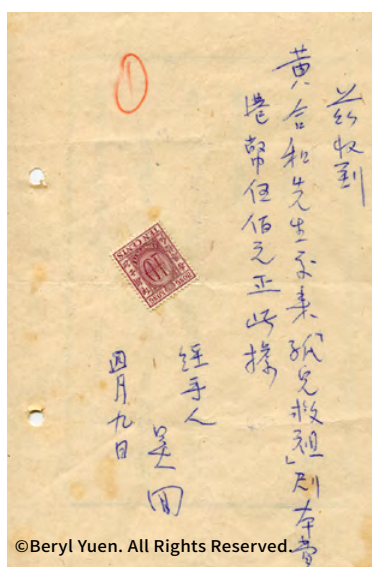 茲收到
黃合和先生交來「孤兒救祖」劇本費
港幣伍佰元正此據
經手人
吳回
四月九日
1
TEN CENTS
10
©Beryl Yuen. All Rights Reserved.